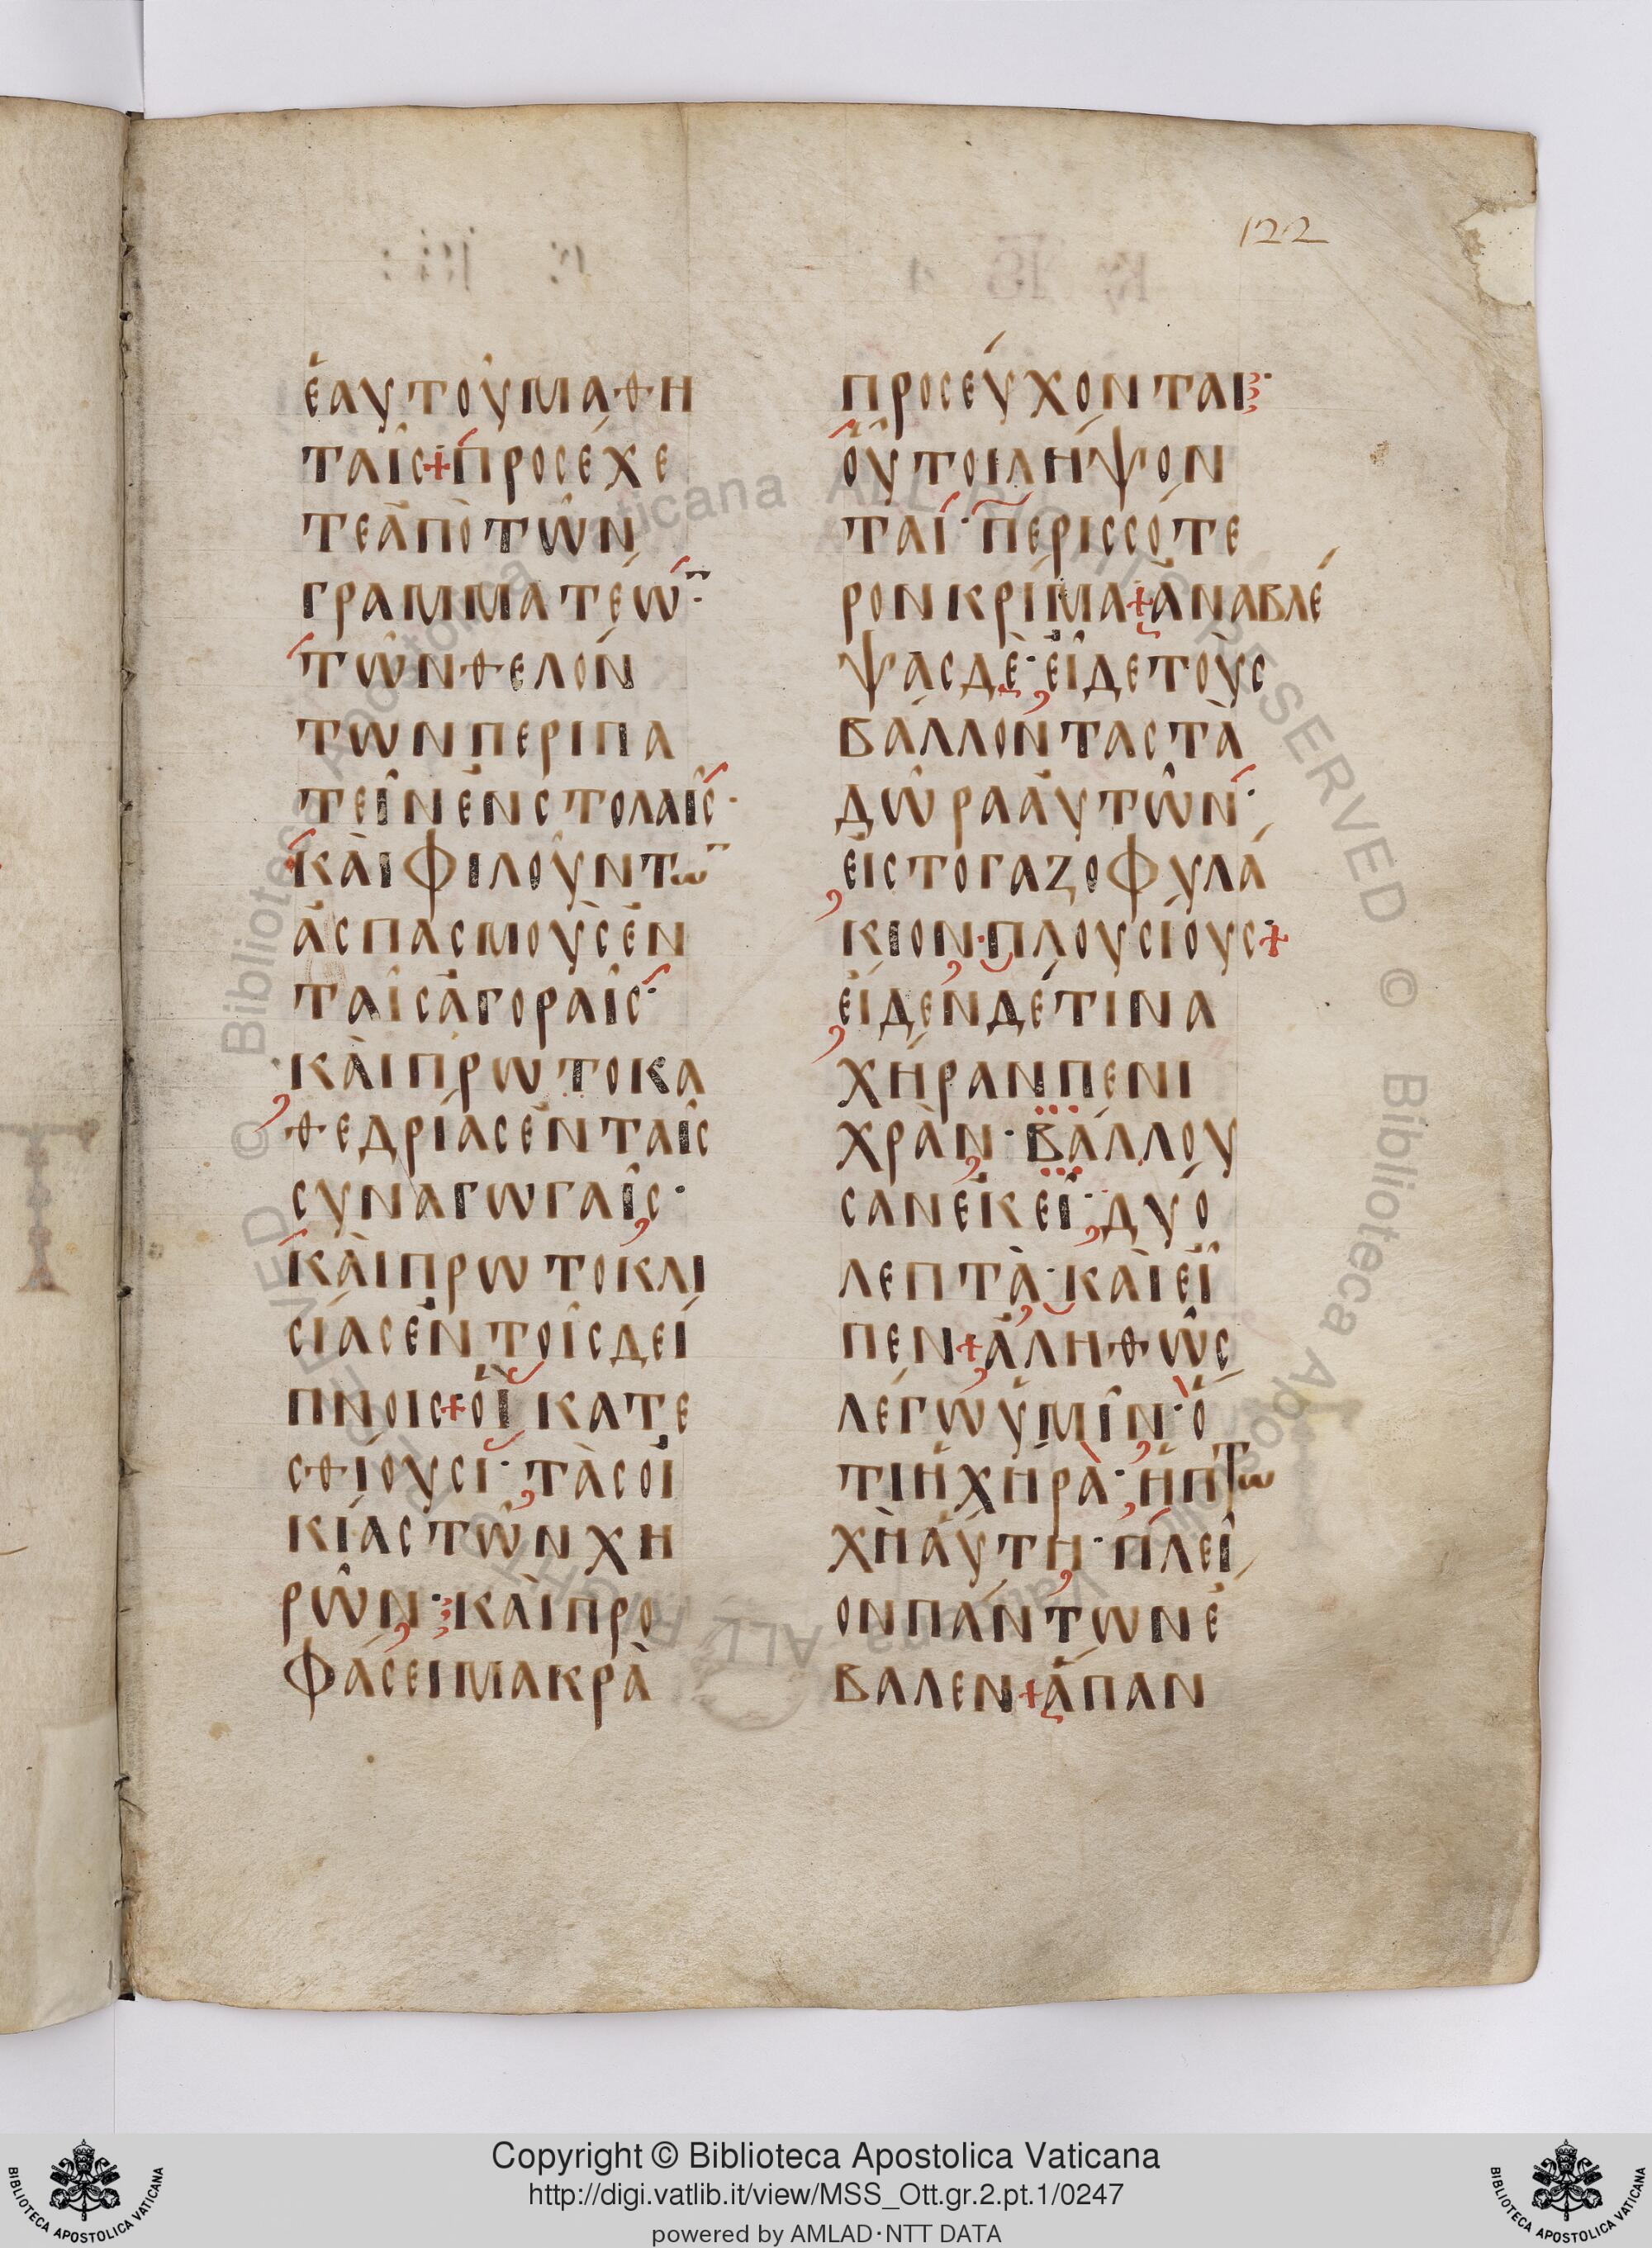 122
ἑαυτοῦ μαθη
ταῖς + προσέχε
τε ἀπὸ τῶν
γραμματέω̅·
τῶν θελόν
των περιπα
τεῖν ἐν στολαῖς·
καὶ φιλούντω̅
ἀσπασμοὺς ἐν
ταῖς ἀγοραῖς·
καὶ πρωτοκα
θεδρίας ἐν ταῖς
συναγωγαῖς·
καὶ πρωτοκλι
σίας ἐν τοῖς δεί
πνοις + οἳ κατε
σθίουσι· τὰς οἰ
κίας τῶν χη
ρῶν· καὶ προ
φάσει μακρὰ
προσεύχονται·
οὗτοι λήψον
ται· περισσότε
ρον κρίμα + ἀναβλέ
ψας δὲ· εἶδε τοὺς
βάλλοντας τὰ
δῶρα αὐτῶν·
εἰς το γαζοφυλά
κιον· πλουσίους +
εἶδεν δέ τινα
χήραν πενι
χρὰν· βάλλου
σαν ἐκεῖ· δύο
λεπτὰ· καὶ εἶ
πεν + ἀληθῶς
λέγω ὑμῖν· ὅ
τι ἡ χήρα· ἡ πτω
χὴ αὕτη· πλεῖ
ον πάντων ἔ
βαλεν + ἅπαν
Copyright © Biblioteca Apostolica Vaticana
http://digi.vatlib.it/view/MSS_Ott.gr.2.pt.1/0247
powered by AMLAD·NTT DATA